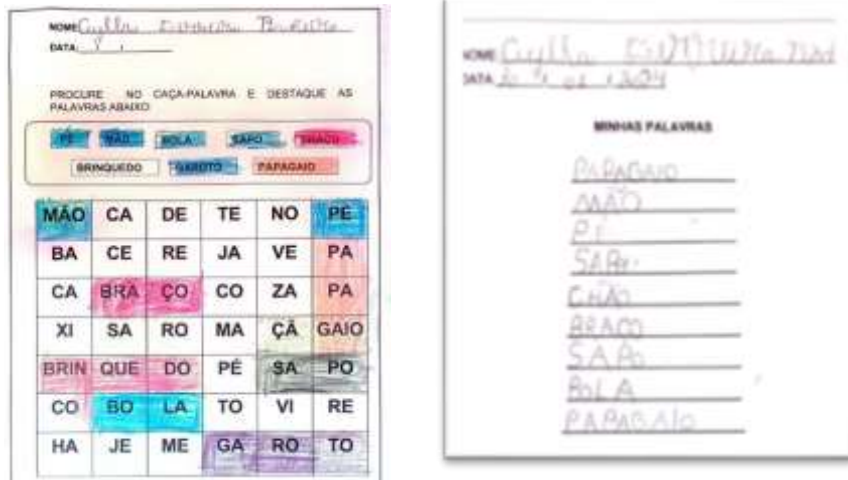 NOME
DATA:
PROCURE NO CAÇA-PALAVRA E DESTAQUE AS
PALAVRAS ABAIXO
PÉ MÃO BOLA SAPO BRAÇO
BRINQUEDO GAROTO PAPAGAIO
MÃO CA DE TE NO PÉ
BA CE RE JA VE PA
CA BRA ÇO CO ZA PA
XI SA RO MA ÇÃ GAIO
BRIN QUE DO PÉ SA PO
CO BO LA TO VI RE
HA JE ME GA RO TO
NOME
DATA
MINHAS PALAVRAS
PAPAGAIO
MÃO
PÉ
SAPO
CHÃO
BRAÇO
SAPO
BOLA
PAPAGAIO